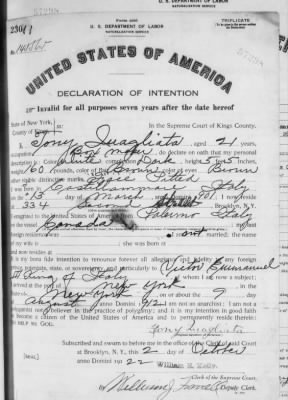 U. S. DEPARTMENT OF LABOR
NATURALIZATION SERVICE
Form 2203
U. S. DEPARTMENT OF LABOR
NATURALIZATION SERVICE
TRIPLICATE
No. 141565
UNITED STATES OF AMERICA
DECLARATION OF INTENTION
Invalid for all purposes seven years after the date hereof
State of New York,
County of
In the Supreme Court of Kings County.
I, Tony Quagliata, aged 21 years,
occupation, do declare on oath that my personal
description is: Color White, complexion Dark, height 5 feet 5 inches,
weight 160 pounds, color of hair Brown, color of eyes Brown
other visible distinctive marks
was born in Castellammare Italy
on the 13 day of March, anno Domini 1901; I now reside
at 334, Brooklyn, N. Y.
emigrated to the United States of America from Palermo Italy
my last
foreign residence was Canada; I am not married; the name
of my wife is; she was born at
It is my bona fide intention to renounce forever all allegiance and fidelity to any foreign
prince, potentate, state, or sovereignty, and particularly to Victor Emmanuel
King of Italy, of whom I am now a subject;
arrived at the port of New York, in the
State of New York, on or about the 9 day
of August, anno Domini 1912; I am not an anarchist; I am not a
polygamist nor a believer in the practice of polygamy; and it is my intention in good faith
to become a citizen of the United States of America and to permanently reside therein:
SO HELP ME GOD.
Tony Quagliata
Subscribed and sworn to before me in the office of the Clerk of said Court
[SEAL]
at Brooklyn, N. Y., this 2 day of October
anno Domini 1922
William E. Kelly
Clerk of the Supreme Court.
By, Deputy Clerk.